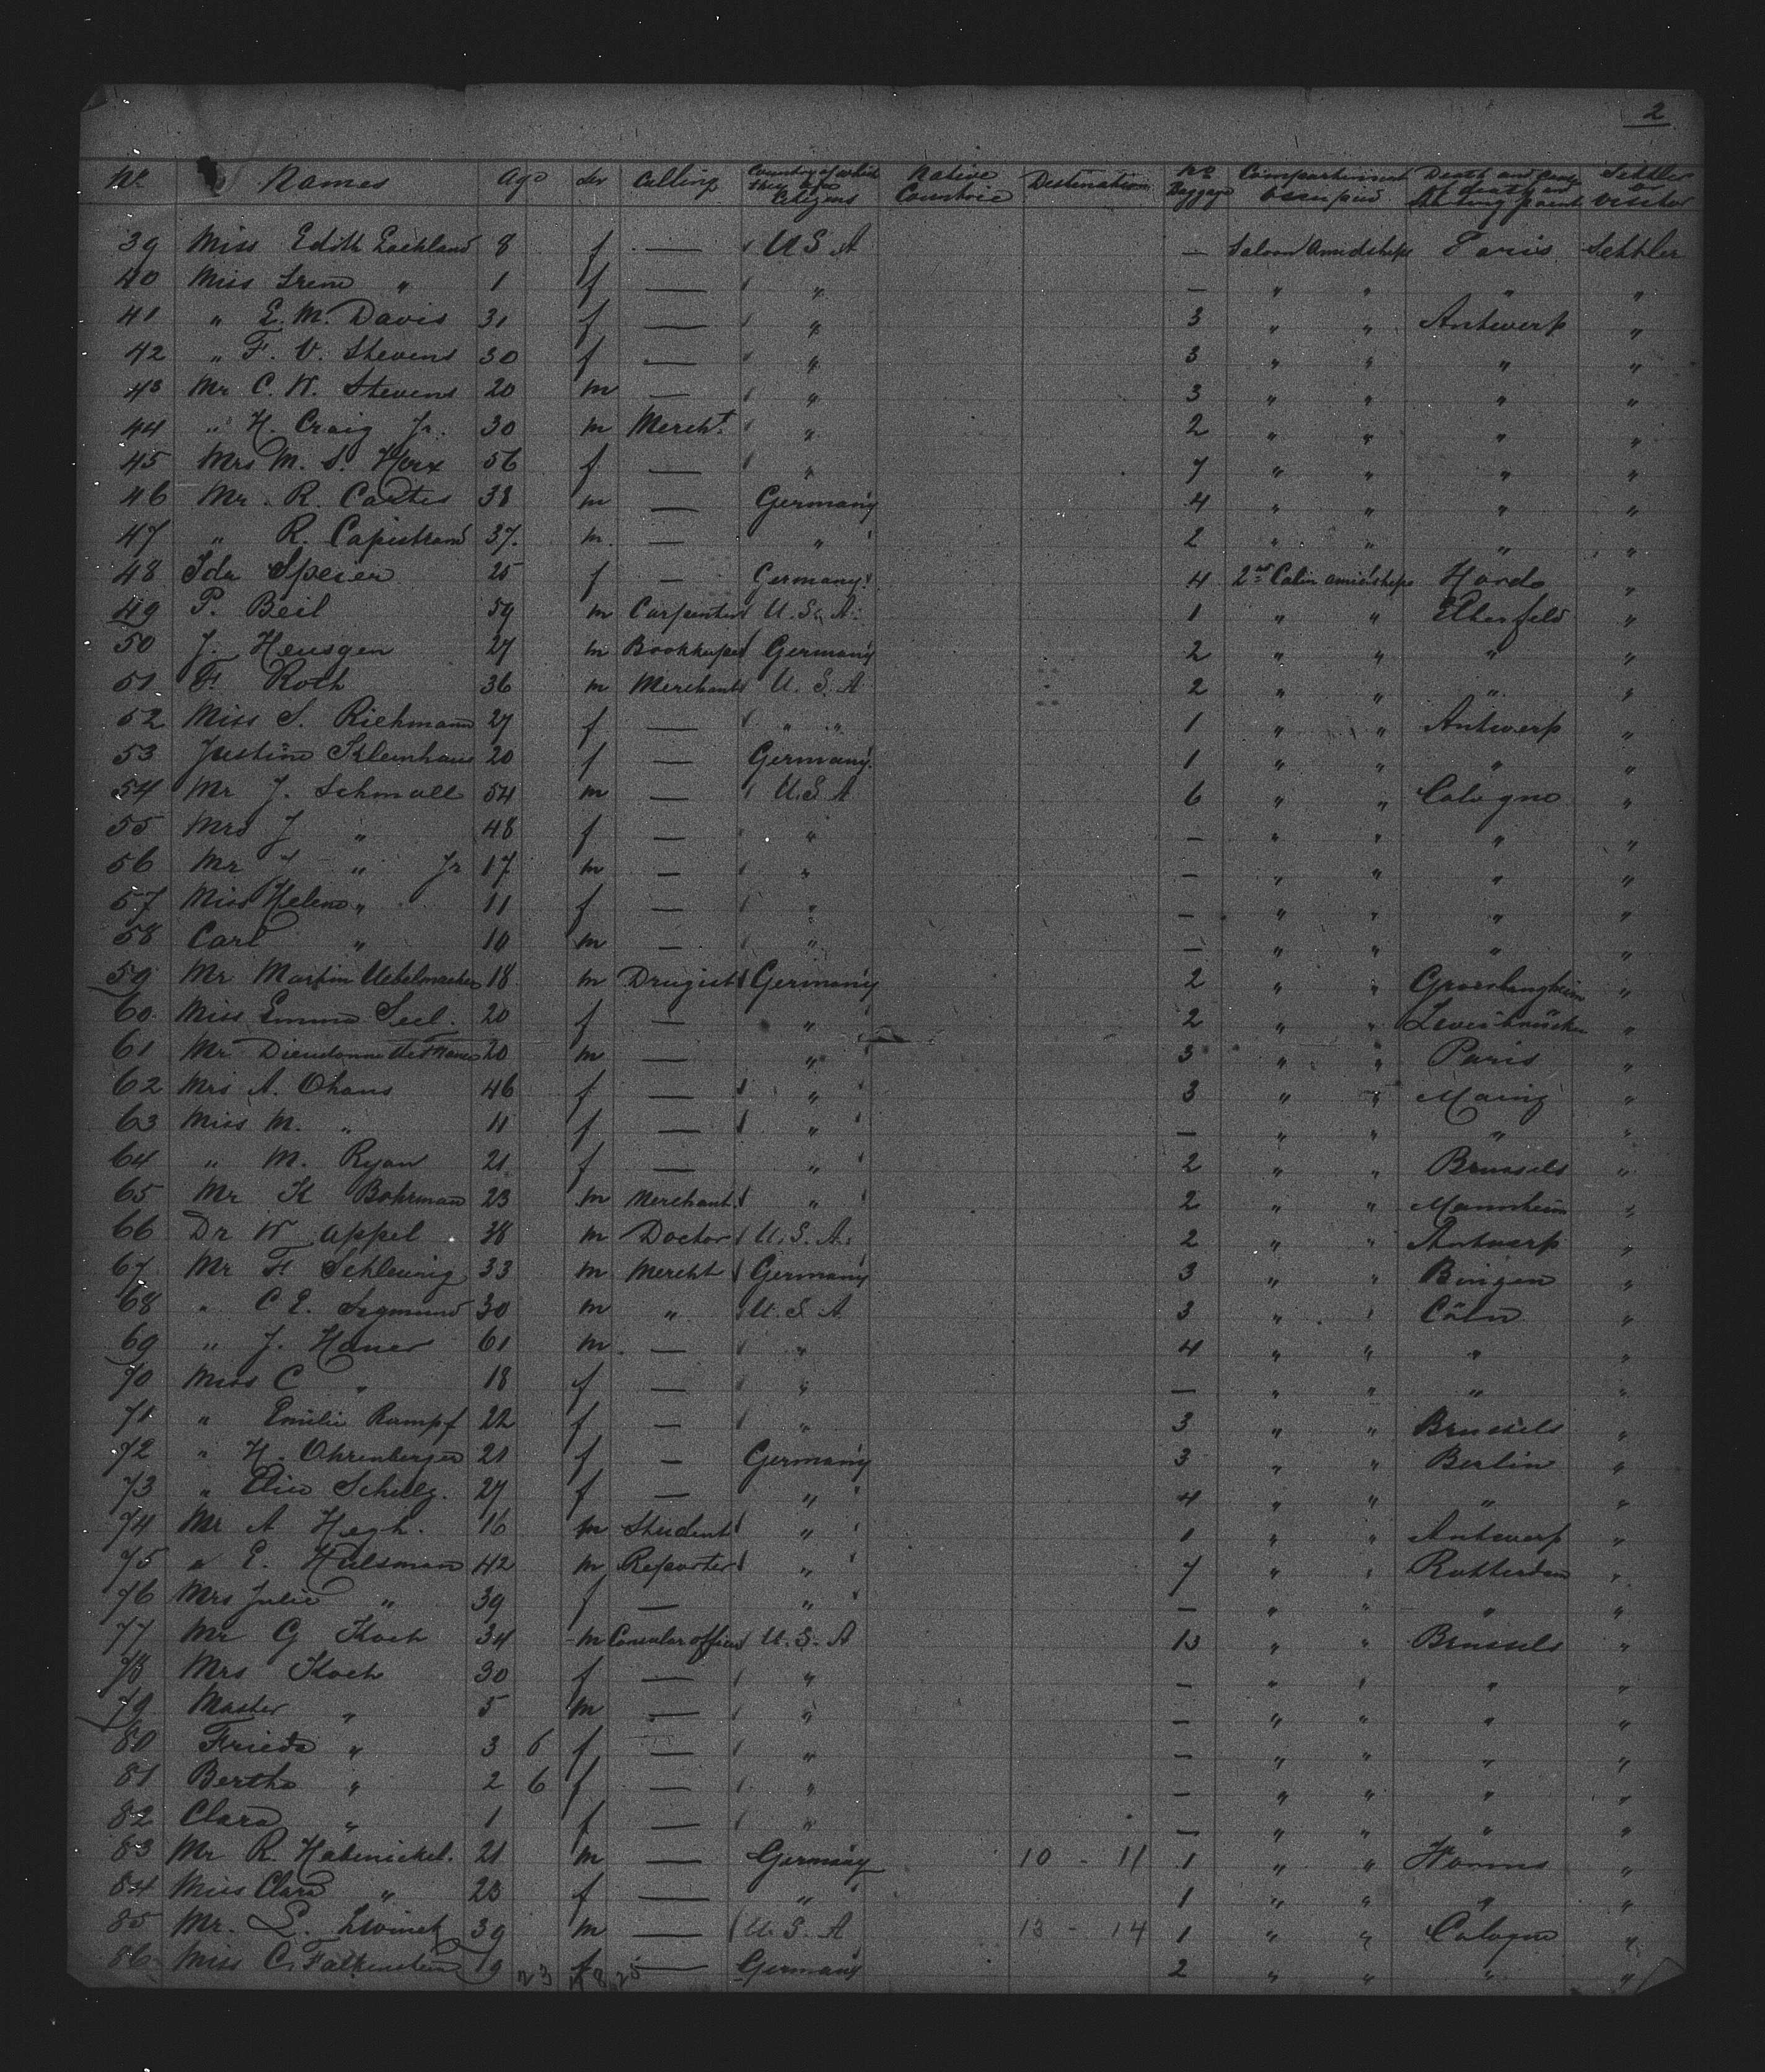 2
No. Names Age Sex Calling Country of which they are Citizens Native Countrie Destination No Baggage Compartment occupied Death and Cause of death and Starting point Settler or visitor
39 Miss Edith Lachland 8 f — U S A — Saloon Amidships Paris Settler
40 Miss Irene " 1 f — " — " " " "
41 " E. M. Davis 31 f — " 3 " " Antwerp "
42 " F. V. Stevens 30 f — " 3 " " " "
43 Mr C. W. Stevens 20 m — " 3 " " " "
44 " H. Craig Jr. 30 m Mercht. " 2 " " " "
45 Mrs M. S. Herx 56 f — " 7 " " " "
46 Mr. R. Cartes 38 m — Germany 4 " " " "
47 " R. Capistrano 37. m. — " 2 " " " "
48 Ida Speier 25 f — Germany 4 2nd Cabin amidships Horde "
49 P. Beil 59 m Carpenter U. S. A. 1 " " Elberfeld "
50 J. Heusgen 27 m Bookkeper Germany 2 " " " "
51 F. Roth 36 m Merchant U. S. A 2 " " " "
52 Miss S. Riehmann 27 f — " " 1 " " Antwerp "
53 Justine Kleinhans 20 f — Germany. 1 " " " "
54 Mr J. Schmoll 54 m — U. S A 6 " " Cologne "
55 Mrs J " 48 f — " — " " " "
56 Mr J " Jr 17 m — " — " " " "
57 Miss Helene " 11 f — " — " " " "
58 Carl " 10 m — " — " " " "
59 Mr Martin Uebelmacher 18 m Drugist Germany 2 " " Grosslangheim "
60. Miss Emma Seel. 20 f — " 2 " " "
61 Mr Dieudonne 20 m — " 3 " " Paris "
62 Mrs A. Ohaus 46 f — " 3 " " Mainz "
63 Miss M. " 11 f — " — " " " "
64 " M. Ryan 21 f — " 2 " " Brussels "
65 Mr K Bohrman 23 m Merchant. " 2 " " Mannheim "
66 Dr W Appel 38 m Doctor U. S. A. 2 " " Antwerp "
67 Mr F Schleunig 33 m Mercht Germany 3 " " Bingen "
68 " C E. Segmund 30 m " U. S A 3 " " Cöln "
69 " J. Haner 61 m — " 4 " " " "
70 Miss C " 18 f — " — " " " "
71 " Emilie Rumpf 22 f — " 3 " " Brussels "
72 " H. Ohrenberger 21 f — Germany 3 " " Berlin "
73 " Elise Schulz. 27 f — " 4 " " " "
74 Mr A Hegh. 16 m Student " 1 " " Antwerp "
75 " E. Hulsman 42 m Reporter " 7 " " Rotterdam "
76 Mrs Julie " 39 f — " — " " " "
77 Mr G Koch 34 m Consular officer U. S. A 13 " " Brussels "
78 Mrs Koch 30 f — " — " " " "
79 Master " 5 m — " — " " " "
80 Frieda " 3 6 f — " — " " " "
81 Bertha " 2 6 f — " — " " " "
82 Clara " 1 f — " — " " " "
83 Mr R. Habenickel. 21 m — Germany 10 - 11 1 " " Worms "
84 Miss Clara " 23 f — " 1 " " " "
85 Mr. L. 39 m — U. S. A 13 - 14 1 " " Cologne "
86 Miss C. Falkenstein 19 f — Germany 2 " " " "